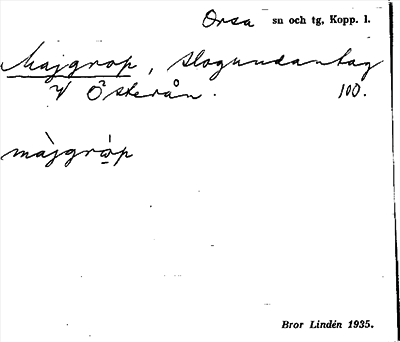 Orsa sn och tg, Kopp. l.
Majgrop, slogundantag
V Österån. 100.
màjgrọ̀p
Bror Lindén 1935.